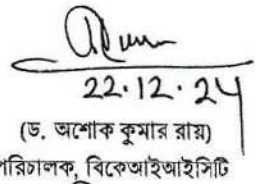 22.12.24
(ড. অশোক কুমার রায়)
পরিচালক, বিকেআইআইসিটি